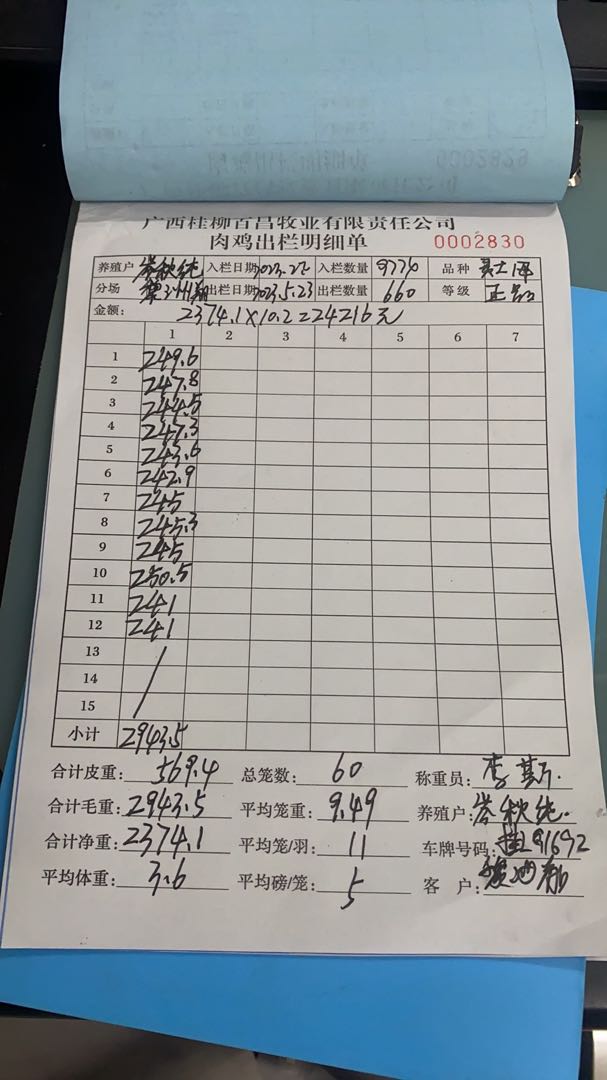 广西桂柳百昌牧业有限责任公司
肉鸡出栏明细单 0002830
养殖户 岑秋纯 入栏日期 入栏数量 9774 品种
分场 出栏日期 2023.5.23 出栏数量 660 等级
金额: 2374.1×10.2=24216元
1 2 3 4 5 6 7
1 249.6
2 247.8
3 244.5
4 247.3
5 243.6
6 242.9
7 245
8 245.3
9 245
10 250.5
11 241
12 241
13
14
15
小计 2943.5
合计皮重: 569.4 总笼数: 60 称重员: 李斯.
合计毛重: 2943.5 平均笼重: 9.49 养殖户: 岑秋纯.
合计净重: 2374.1 平均笼/羽: 11 车牌号码: 桂 91692
平均体重: 3.6 平均磅/笼: 5 客户: